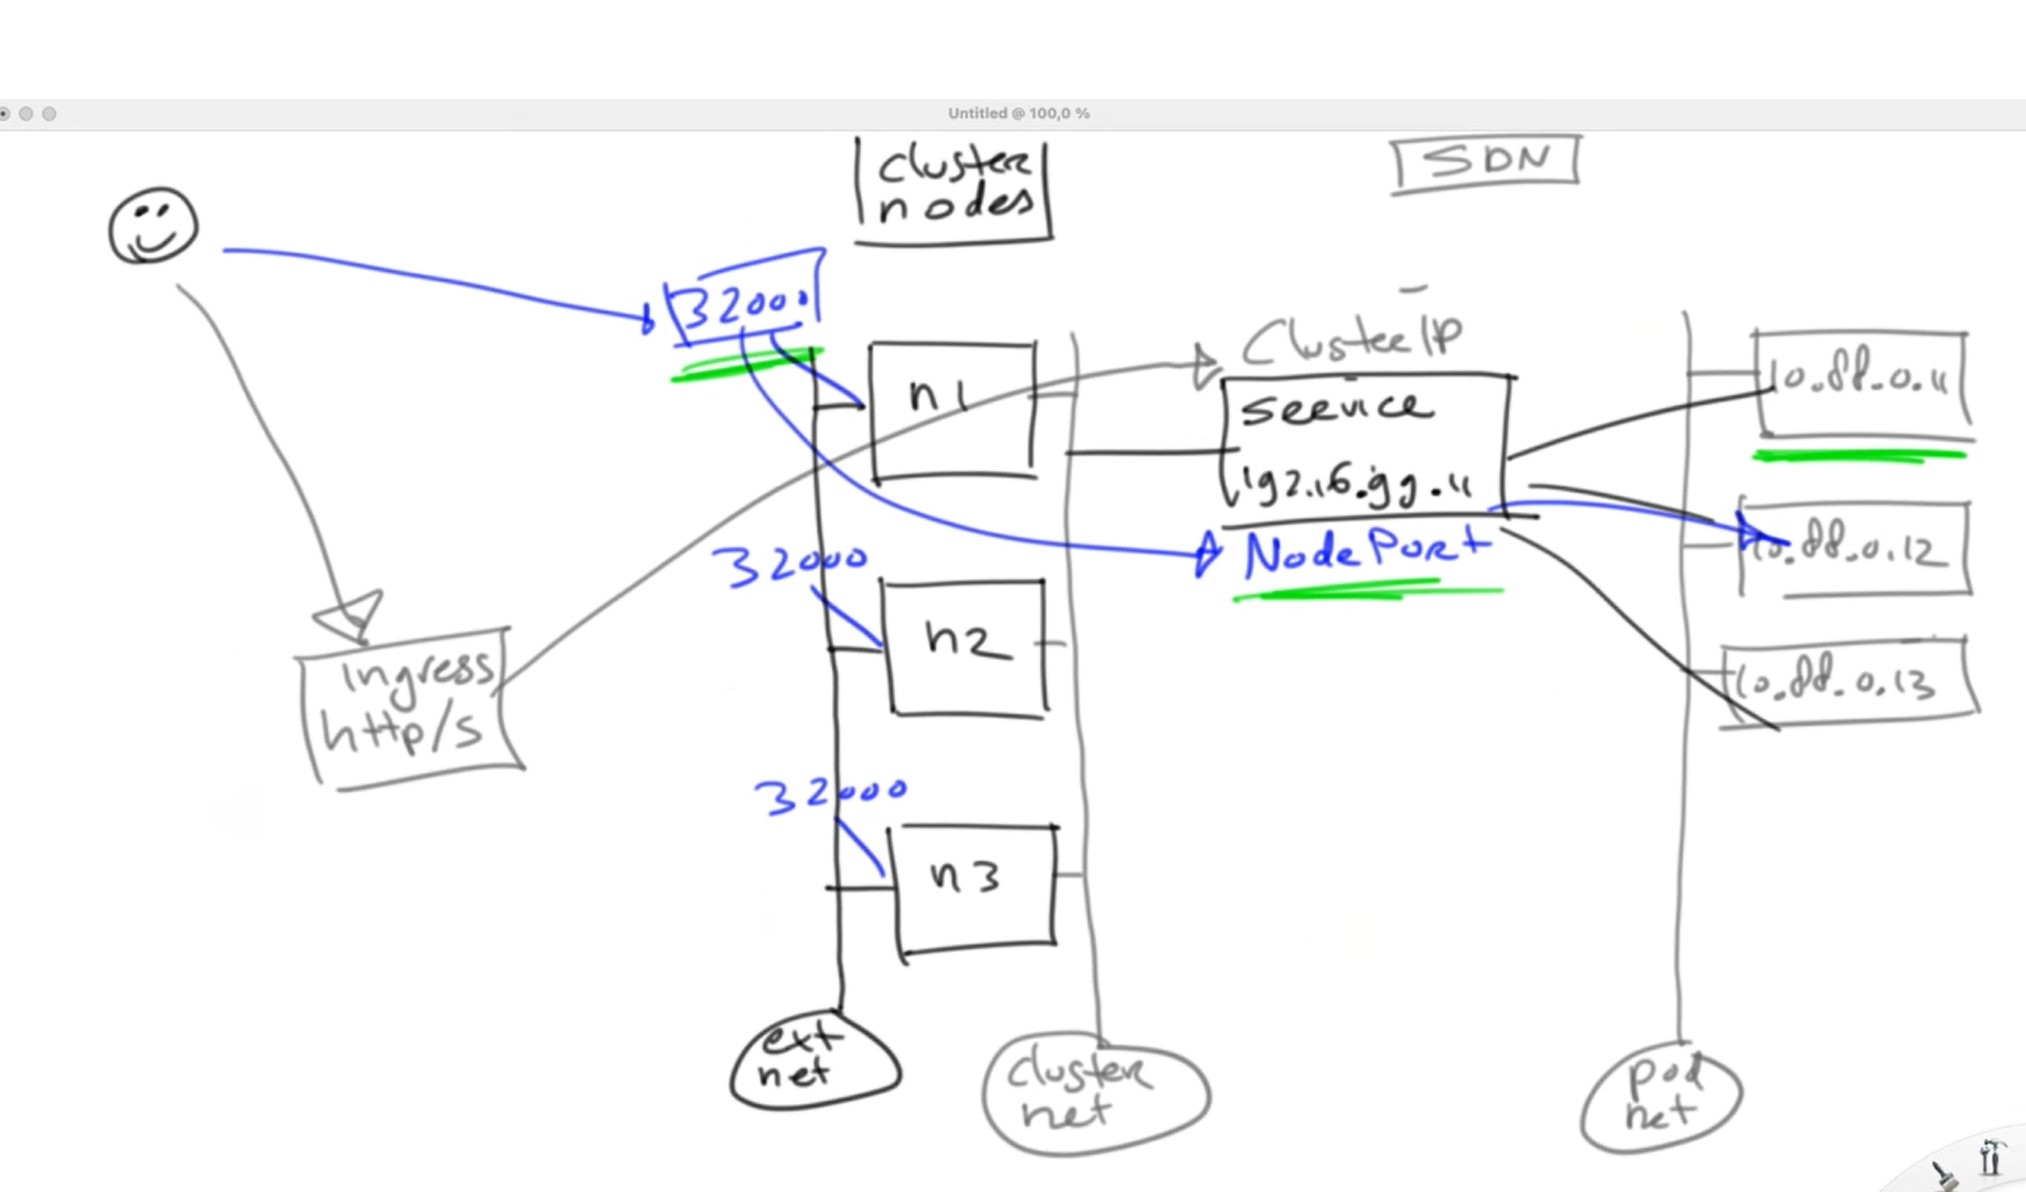 Untitled @ 100,0 %
cluster
nodes
SDN
32000
ClusterIP
n1
service
192.16.99.11
NodePort
10.88.0.11
10.88.0.12
10.88.0.13
32000
n2
Ingress
http/s
32000
n3
ext
net
cluster
net
pod
net